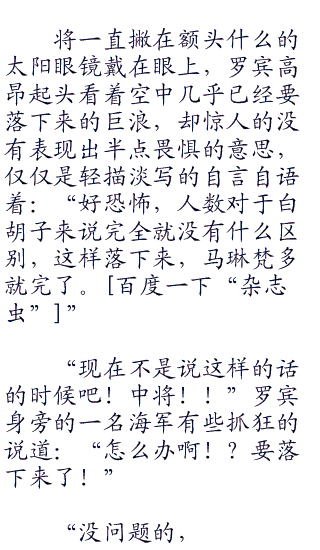 将一直撇在额头什么的
太阳眼镜戴在眼上，罗宾高
昂起头看着空中几乎已经要
落下来的巨浪，却惊人的没
有表现出半点畏惧的意思，
仅仅是轻描淡写的自言自语
着：“好恐怖，人数对于白
胡子来说完全就没有什么区
别，这样落下来，马琳梵多
就完了。[百度一下“杂志
虫”]”
“现在不是说这样的话
的时候吧！中将！！”罗宾
身旁的一名海军有些抓狂的
说道：“怎么办啊！？要落
下来了！”
“没问题的，